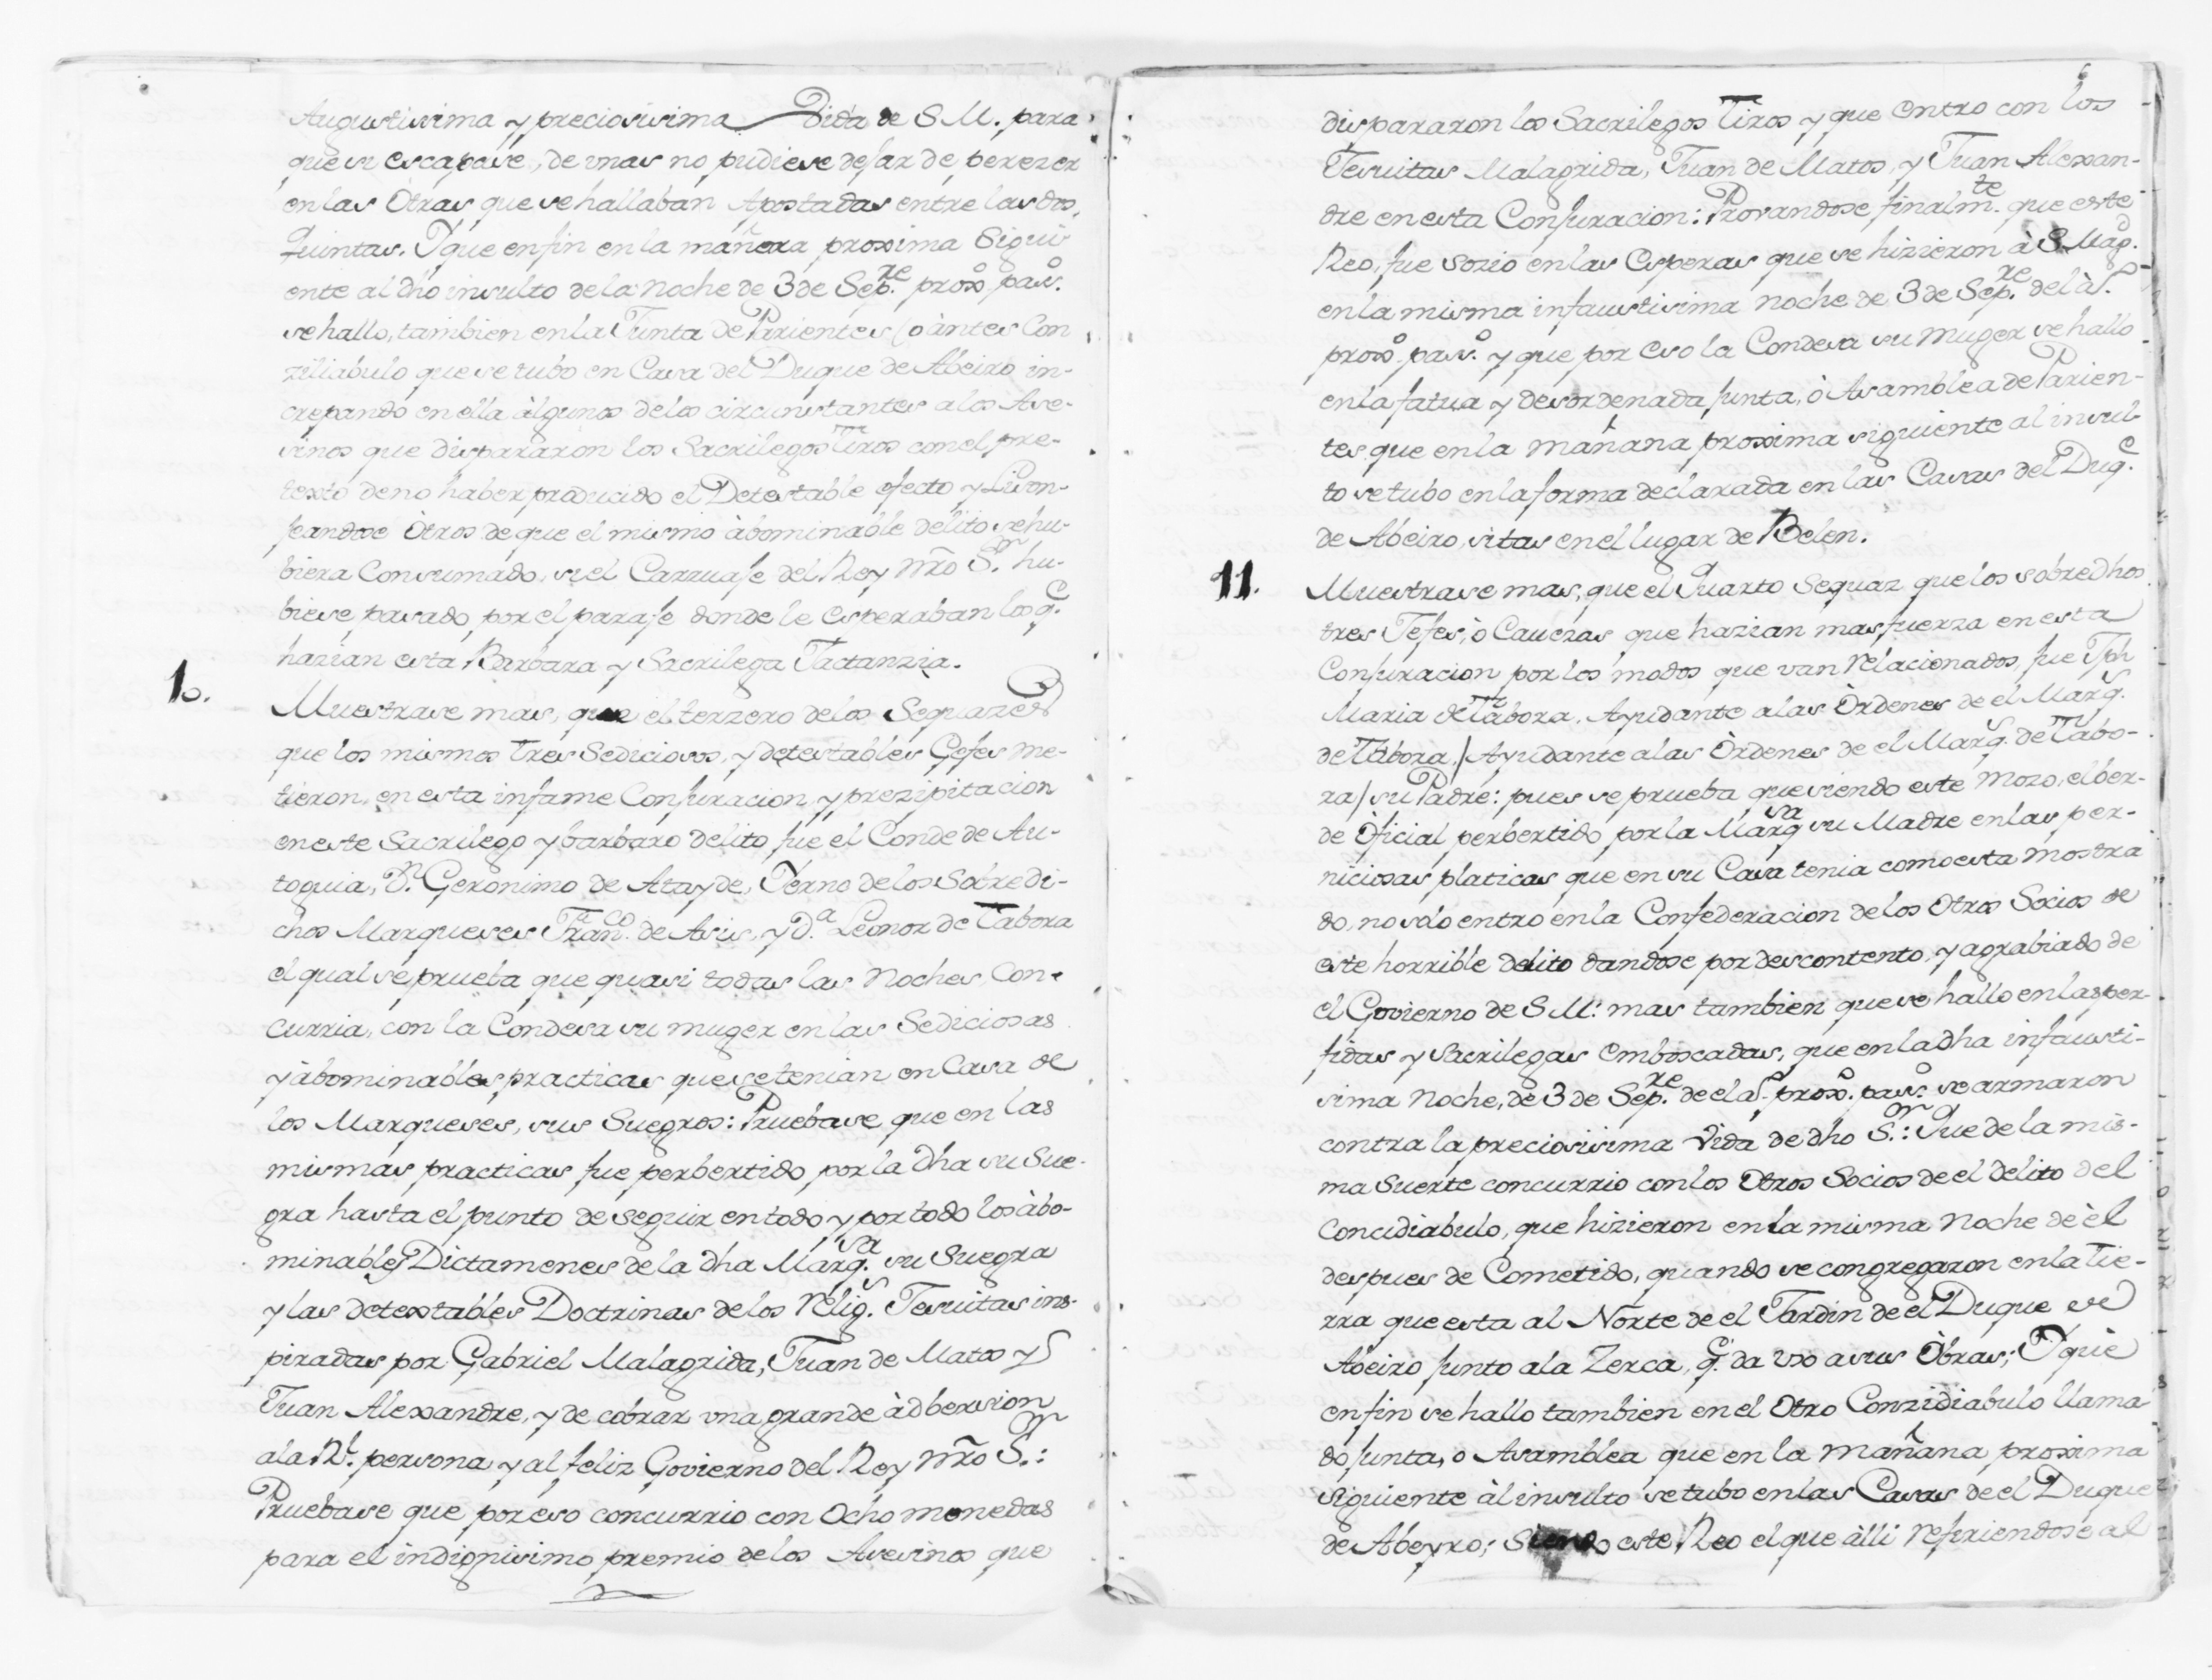 Augustissima y preciosissima Vida de S M. para
que si escapase, de unas no pudiese dejar de perezer
en las Otras, que se hallaban Apostadas entre las dos,
Quintas. Y que en fin en la mañera proxima Sigui
ente al dho insulto de la noche de 3 de Sep.re proxo. paso.
se hallo, tambien en la Junta de Parientes (o àntes Con
ziliabulo que se tubo en Casa del Duque de Abeiro in-
crepando en ella àlgunos de los circunstantes a los Ase-
sinos que dispararon los Sacrilegos Tiros con el pre-
texto de no haber producido el Detestable efecto y Lison-
jeandose Otros de que el mismo àbominable delito se hu-
biera Consumado, si el Carruaje del Rey Nro S.r hu-
biese pasado, por el paraje donde le esperaban los q.e
hazian esta Barbara y Sacrilega Jactanzia.
10.
Muestrase mas, que el terzero de los Sequazes
que los mismos tres Sediciosos, y detestables Gefes me-
tieron, en esta infame Conjuracion, y prezipitacion
en este Sacrilego y barbaro delito fue el Conde de Au-
toguia, D.n Geronimo de Atayde, Yerno de los Sobredi-
chos Marqueses Fran.co de Asis, y D.a Leonor de Tabora
el qual se prueba que quasi todas las Noches, Con-
curria, con la Condesa su muger en las Sediciosas
y àbominables practicas que se tenian en Casa de
los Marqueses, sus Suegros: Pruebase, que en las
mismas practicas fue perbertido por la dha su Sue-
gra hasta el punto de seguir en todo y por todo los àbo-
minables Dictamenes de la dha Marq.sa su Suegra
y las detextables Doctrinas de los Relig.s Jesuitas ins-
piradas por Gabriel Malagrida, Juan de Matos y
Juan Alexandre, y de cobrar una grande àdbersion
a la R.l persona y al feliz Govierno del Rey Nro S.r:
Pruebase que por eso concurrio con Ocho monedas
para el indignisimo premio de los Asesinos que
dispararon los Sacrilegos Tiros y que Entro con los
Jesuitas Malagrida, Juan de Matos, y Juan Alexan-
dre en esta Conjuracion: Provandose finalm.te que este
Reo, fue Sozio en las Esperas que se hizieron à S. Mag.d
en la misma infaustisima noche de 3 de Sep.re del àº.
proxo. paso. y que por eso la Condesa su Muger se hallo
en la fatua y desordenada junta, ò Asamblea de Parien-
tes que en la mañana proxima siguiente al insul-
to se tubo en la forma declarada en las Casas del Duq.e
de Abeiro, sitas en el lugar de Belen.
11.
Muestrase mas, que el Quarto Sequaz que los sobredhos
tres Jefes, ò Cauezas que hazian mas fuerza en esta
Conjuracion por los modos que van Relacionados, fue Jph
Maria de Tabora, Ayudante a las Òrdenes de el Marq.s
de Tabora,/ Ayudante a las Òrdenes de el Marq.s de Tabo-
ra/ su Padre: pues se prueba que siendo este Mozo, el ber-
de Oficial perbertido por la Marq.sa su Madre en las per-
niciosas platicas que en su Casa tenia como esta mostra
do, no solo entro en la Confederacion de los Otros Socios de
este horrible delito dandose por descontento, y agrabiado de
el Govierno de S M: mas tambien que se hallo en las per-
fidas y Sacrilegas Emboscadas, que en la dha infausti-
sima Noche, de 3 de Sep.re de el aº. proxo. paso. se armaron
contra la preciosisima Vida de dho S.r: Que de la mis-
ma Suerte concurrio con los Otros Socios de el delito del
Concidiabulo, que hizieron en la misma Noche de èl
despues de Cometido, quando se congregaron en la Tie-
rra que esta al Norte de el Jardin de el Duque de
Abeiro junto a la Zerca, q.e da uso a sus Òbras; Y què
en fin se hallo tambien en el Otro Conzidiabulo llama
do Junta, o Asamblea que en la mañana proxima
siguiente àl insulto se tubo en las Casas de el Duque
de Abeyro; Siendo este Reo el que àlli Refiriendose al